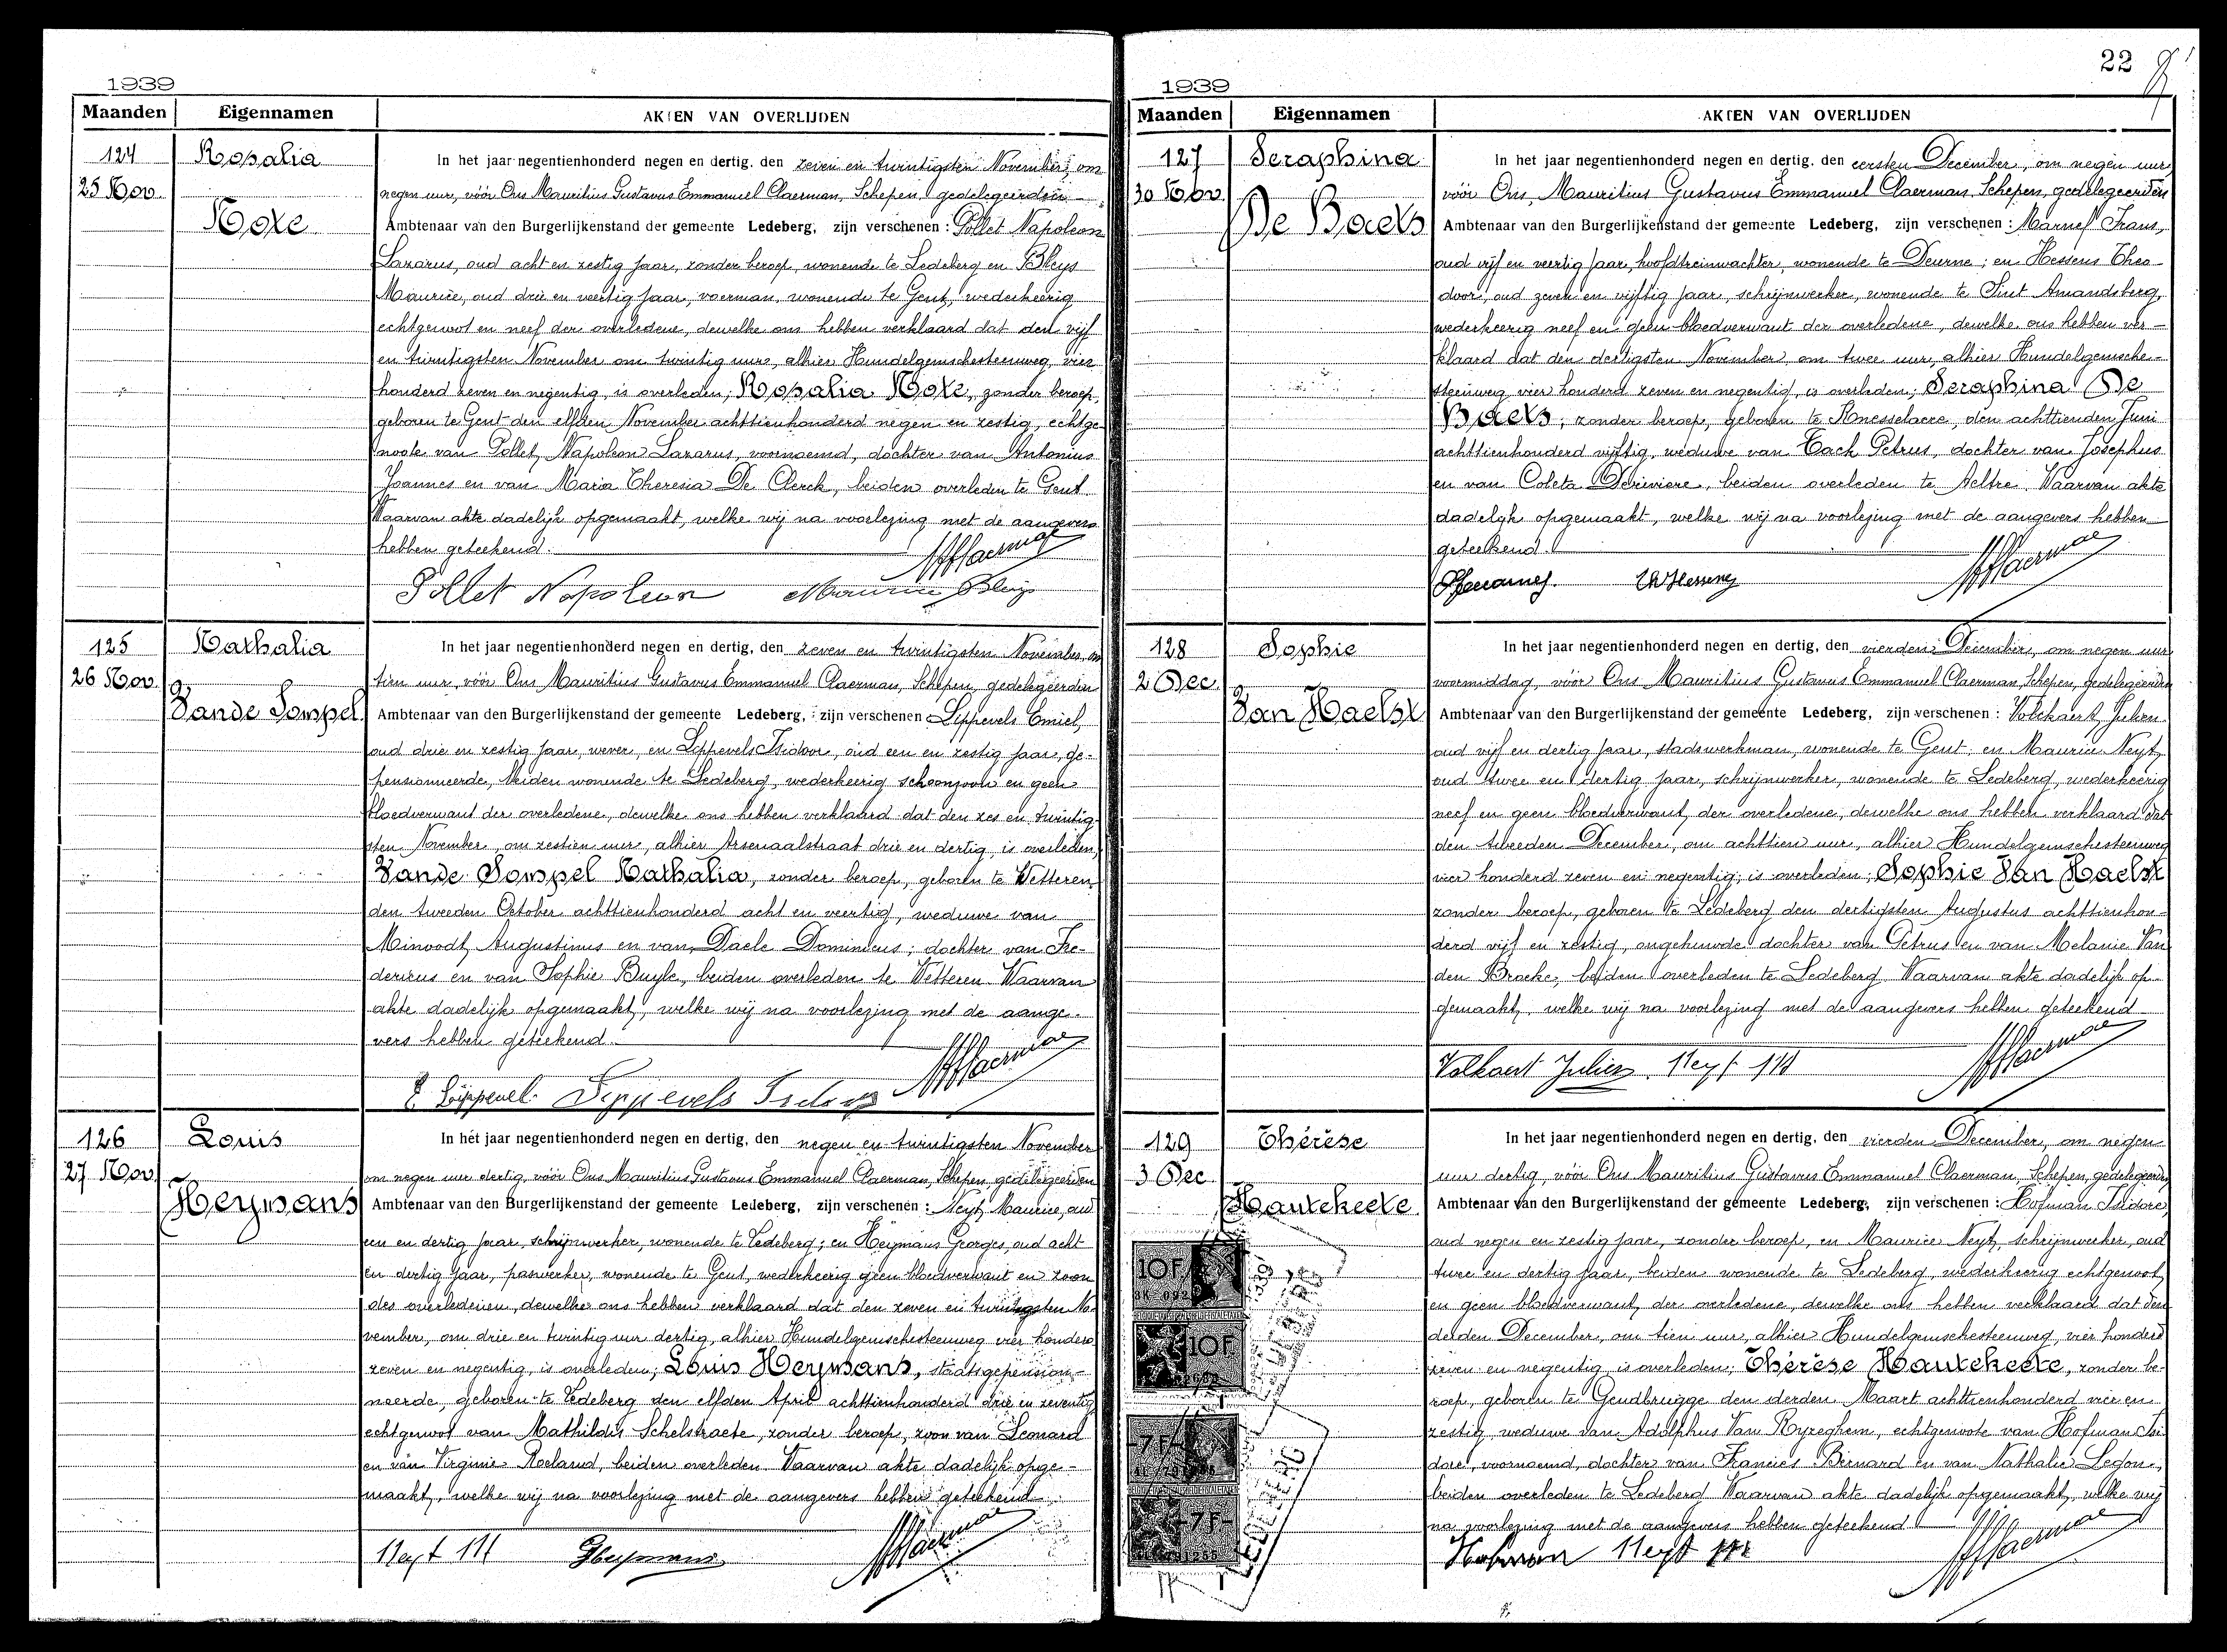 1939
Maanden Eigennamen AKTEN VAN OVERLIJDEN
124
25 Nov.
Rosalia
Note
In het jaar negentienhonderd negen en dertig, den zeven en twintigsten November, om
negen uur, vóór Ons Mauritius Gustavus Emmanuel Claerman, Schepen, gedelegeerden
Ambtenaar van den Burgerlijkenstand der gemeente Ledeberg, zijn verschenen : Pollet Napoleon
Lazarus, oud acht en zestig jaar, zonder beroep, wonende te Ledeberg en Bleys
Maurice, oud drie en veertig jaar, voerman, wonende te Gent, wederkeerig
echtgenoot en neef der overledene, dewelke ons hebben verklaard dat den vijf
en twintigsten November om twintig uur, alhier Hundelgemschesteenweg, vier
honderd zeven en negentig, is overleden; Rosalia Note, zonder beroep,
geboren te Gent den elfden November achttienhonderd negen en zestig, echtge-
noote van Pollet, Napoleon Lazarus, voornoemd, dochter van Antonius
Joannes en van Maria Theresia De Clerck, beiden overleden te Gent.
Waarvan akte dadelijk opgemaakt, welke wij na voorlezing met de aangevers
hebben geteekend.
Pollet Napoleon Maurice Bleys
125
26 Nov.
Nathalia
Vande Sompel
In het jaar negentienhonderd negen en dertig, den zeven en twintigsten November, om
tien uur, vóór Ons Mauritius Gustavus Emmanuel Claerman, Schepen, gedelegeerden
Ambtenaar van den Burgerlijkenstand der gemeente Ledeberg, zijn verschenen Lippevels Emiel,
oud drie en zestig jaar, wever, en Lippevels Isidoor, oud een en zestig jaar, ge-
pensionneerde, beiden wonende te Ledeberg, wederkeerig schoonzoon en geen
bloedverwant der overledene, dewelke ons hebben verklaard dat den zes en twintig-
sten November, om zestien uur, alhier Arsenaalstraat drie en dertig, is overleden,
Vande Sompel Nathalia, zonder beroep, geboren te Wetteren
den tweeden October achttienhonderd acht en veertig, weduwe van
Minvodt, Augustinus en van Daele Dominicus; dochter van Fre-
dericus en van Sophie Buyle, beiden overleden te Wetteren. Waarvan
akte dadelijk opgemaakt, welke wij na voorlezing met de aange-
vers hebben geteekend.
E. Lippevel. Lippevels Isidoor
126
27 Nov.
Louis
Heymans
In het jaar negentienhonderd negen en dertig, den negen en twintigsten November
om negen uur dertig, vóór Ons Mauritius Gustavus Emmanuel Claerman, Schepen, gedelegeerden
Ambtenaar van den Burgerlijkenstand der gemeente Ledeberg, zijn verschenen : Neyt, Maurice, oud
een en dertig jaar, schrijnwerker, wonende te Ledeberg; en Heymans Georges, oud acht
en dertig jaar, paswerker, wonende te Gent, wederkeerig geen bloedverwant en zoon
des overledenen, dewelke ons hebben verklaard dat den zeven en twintigsten No-
vember, om drie en twintig uur dertig, alhier Hundelgemschesteenweg vier honderd
zeven en negentig, is overleden; Louis Heymans, staatsgepension-
neerde, geboren te Ledeberg den elfden April achttienhonderd drie en zeventig,
echtgenoot van Mathildis Schelstraete, zonder beroep, zoon van Leonard
en van Virginie Roeland, beiden overleden. Waarvan akte dadelijk opge-
maakt, welke wij na voorlezing met de aangevers hebben geteekend.
Neyt M Heymans
22
1939
Maanden Eigennamen AKTEN VAN OVERLIJDEN
127
30 Nov.
Seraphina
De Baets
In het jaar negentienhonderd negen en dertig, den eersten December, om negen uur,
vóór Ons, Mauritius Gustavus Emmanuel Claerman, Schepen, gedelegeerden
Ambtenaar van den Burgerlijkenstand der gemeente Ledeberg, zijn verschenen : Marnef Frans,
oud vijf en veertig jaar, hoofdtreinwachter, wonende te Deurne; en Hessens Theo-
door, oud zeven en vijftig jaar, schrijnwerker, wonende te Sint Amandsberg,
wederkeerig neef en geen bloedverwant der overledene, dewelke ons hebben ver-
klaard dat den dertigsten November om twee uur, alhier Hundelgemsche-
steenweg vier honderd zeven en negentig, is overleden; Seraphina De
Baets; zonder beroep, geboren te Knesselaere, den achttienden Juni
achttienhonderd vijftig, weduwe van Tach Petrus, dochter van Josephus
en van Coleta Deriviere, beiden overleden te Aeltre. Waarvan akte
dadelijk opgemaakt, welke wij na voorlezing met de aangevers hebben
geteekend.
128
2 Dec.
Sophie
Van Haelst
In het jaar negentienhonderd negen en dertig, den vierden December, om negen uur
voormiddag, vóór Ons Mauritius Gustavus Emmanuel Claerman, Schepen, gedelegeerden
Ambtenaar van den Burgerlijkenstand der gemeente Ledeberg, zijn verschenen : Volckaert, Julien
oud vijf en dertig jaar, stadswerkman, wonende te Gent, en Maurice Neyt,
oud twee en dertig jaar, schrijnwerker, wonende te Ledeberg, wederkeerig
neef en geen bloedverwant, der overledene, dewelke ons hebben verklaard dat
den tweeden December, om achttien uur, alhier Hundelgemschesteenweg
vier honderd zeven en negentig; is overleden; Sophie Van Haelst
zonder beroep, geboren te Ledeberg den dertigsten Augustus achttienhon-
derd vijf en zestig, ongehuwde dochter van Petrus en van Melanie Van
den Broeke, beiden overleden te Ledeberg. Waarvan akte dadelijk op-
gemaakt, welke wij na voorlezing met de aangevers hebben geteekend
Volkaert Julien. Neyt M
129
3 Dec.
Thérèse
Hautekeete
In het jaar negentienhonderd negen en dertig, den vierden December, om negen
uur dertig, vóór Ons Mauritius Gustavus Emmanuel Claerman, Schepen, gedelegeerden
Ambtenaar van den Burgerlijkenstand der gemeente Ledeberg, zijn verschenen : Hofman Isidore,
oud negen en zestig jaar, zonder beroep, en Maurice Neyt, schrijnwerker, oud
twee en dertig jaar, beiden wonende te Ledeberg, wederkeerig echtgenoot,
en geen bloedverwant, der overledene, dewelke ons hebben verklaard dat den
derden December, om tien uur, alhier Hundelgemschesteenweg, vier honderd
zeven en negentig is overleden; Thérèse Hautekeete, zonder be-
roep, geboren te Gendbrugge den derden Maart achttienhonderd vier en
zestig, weduwe van Adolphus Van Ryzeghem, echtgenoote van Hofman Isi-
dore, voornoemd, dochter van Francies Bernard en van Nathalie Ledon,
beiden overleden te Ledeberg. Waarvan akte dadelijk opgemaakt, welke wij
na voorlezing met de aangevers hebben geteekend
Hofman Neyt M
10F
10F
-7F-
-7F-